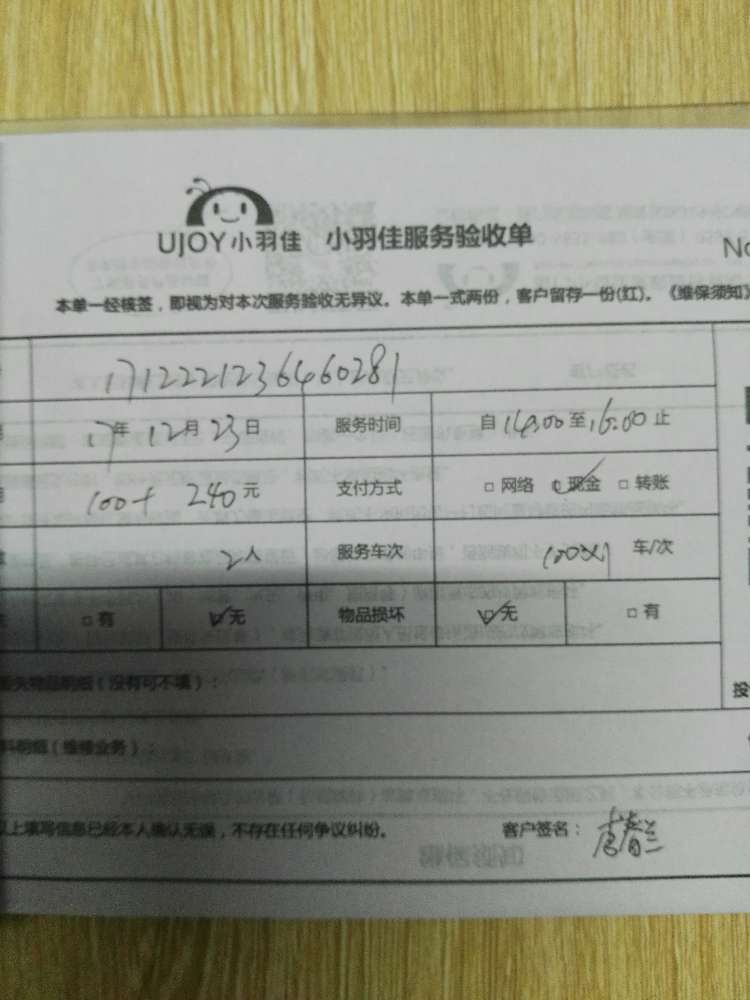 UJOY小羽佳 小羽佳服务验收单
No
本单一经核签，即视为对本次服务验收无异议。本单一式两份，客户留存一份(红)。《维保须知》
1712221236460281
17年 12月 23日 服务时间 自 14:00 至 16:00 止
100+ 240 元 支付方式 □ 网络 □ 现金 □ 转账
2人 服务车次 100X1 车/次
□ 有 □ 无 物品损坏 □ 无 □ 有
失物品明细（没有可不填）：
投
料明细（维修业务）
以上填写信息已经本人确认无误，不存在任何争议纠纷。 客户签名：